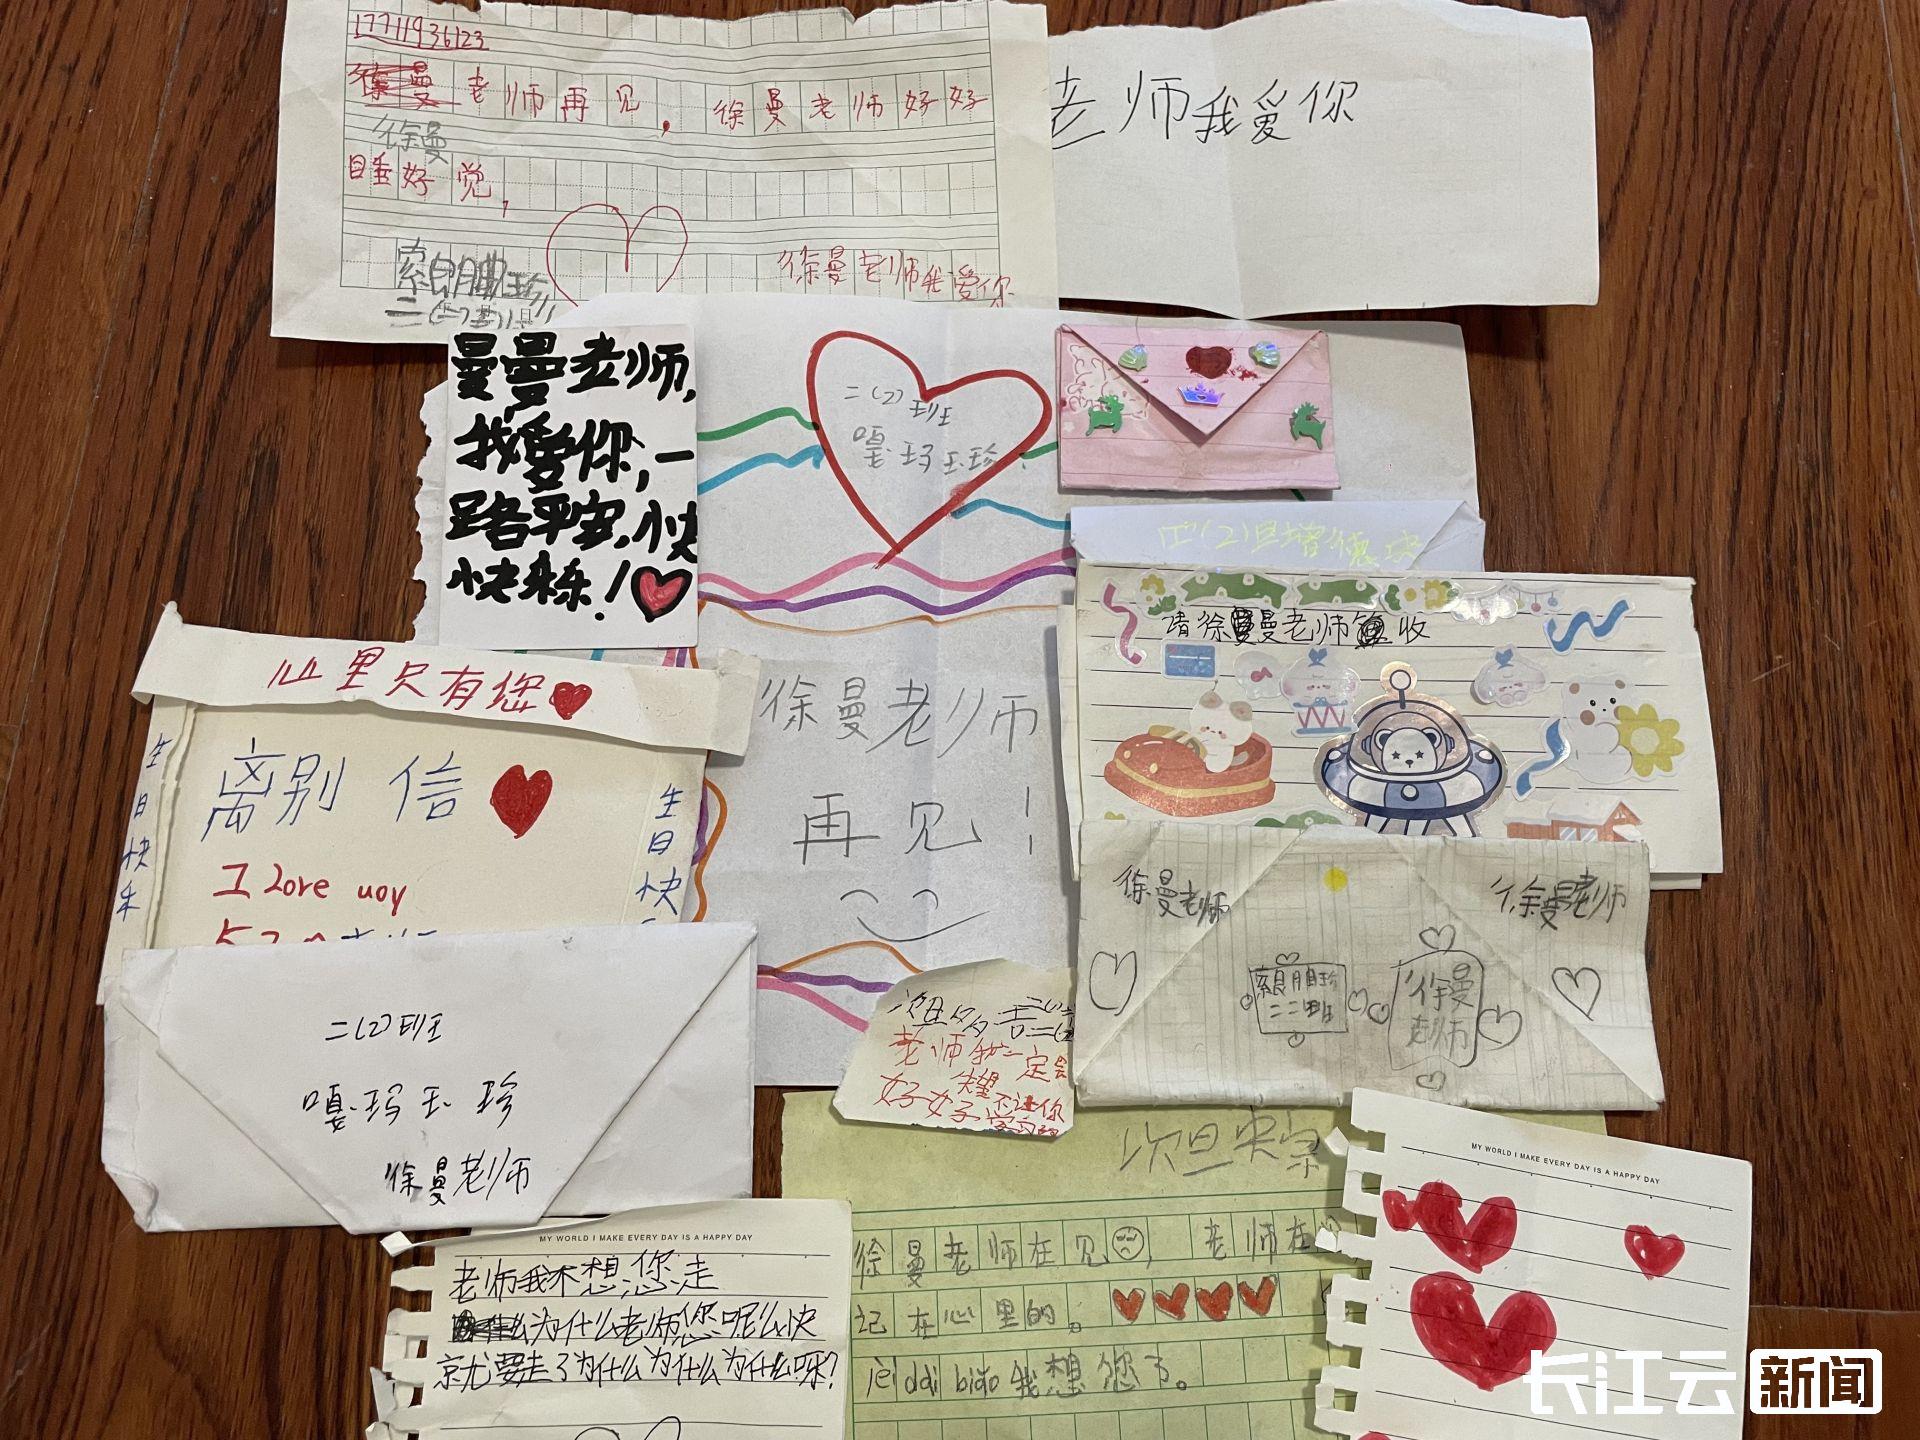 17711936123
徐曼老师再见，徐曼老师好好
徐曼
睡好觉，
索朗曲珍
徐曼老师我爱你
老师我爱你
曼曼老师，
我爱你，一
路平安，快
快乐乐！
二(2)班
嘎玛玉珍
请徐曼老师 收
心里只有您
离别信
生日快乐
生日快
I love uoy
徐曼老师
再见！
徐曼老师
徐曼老师
索朗曲珍
二二班
徐曼
老师
二(2)班
嘎玛玉珍
徐曼老师
老师我一定会
失望 不让你
好好学习
次旦央宗
徐曼老师在见，老师在
记在心里的。
我想您了。
MY WORLD I MAKE EVERY DAY IS A HAPPY DAY
老师我不想您走
为什么老师您呢么快
就要走了为什么为什么为什么呀？
MY WORLD I MAKE EVERY DAY IS A HAPPY DAY
长江云 新闻